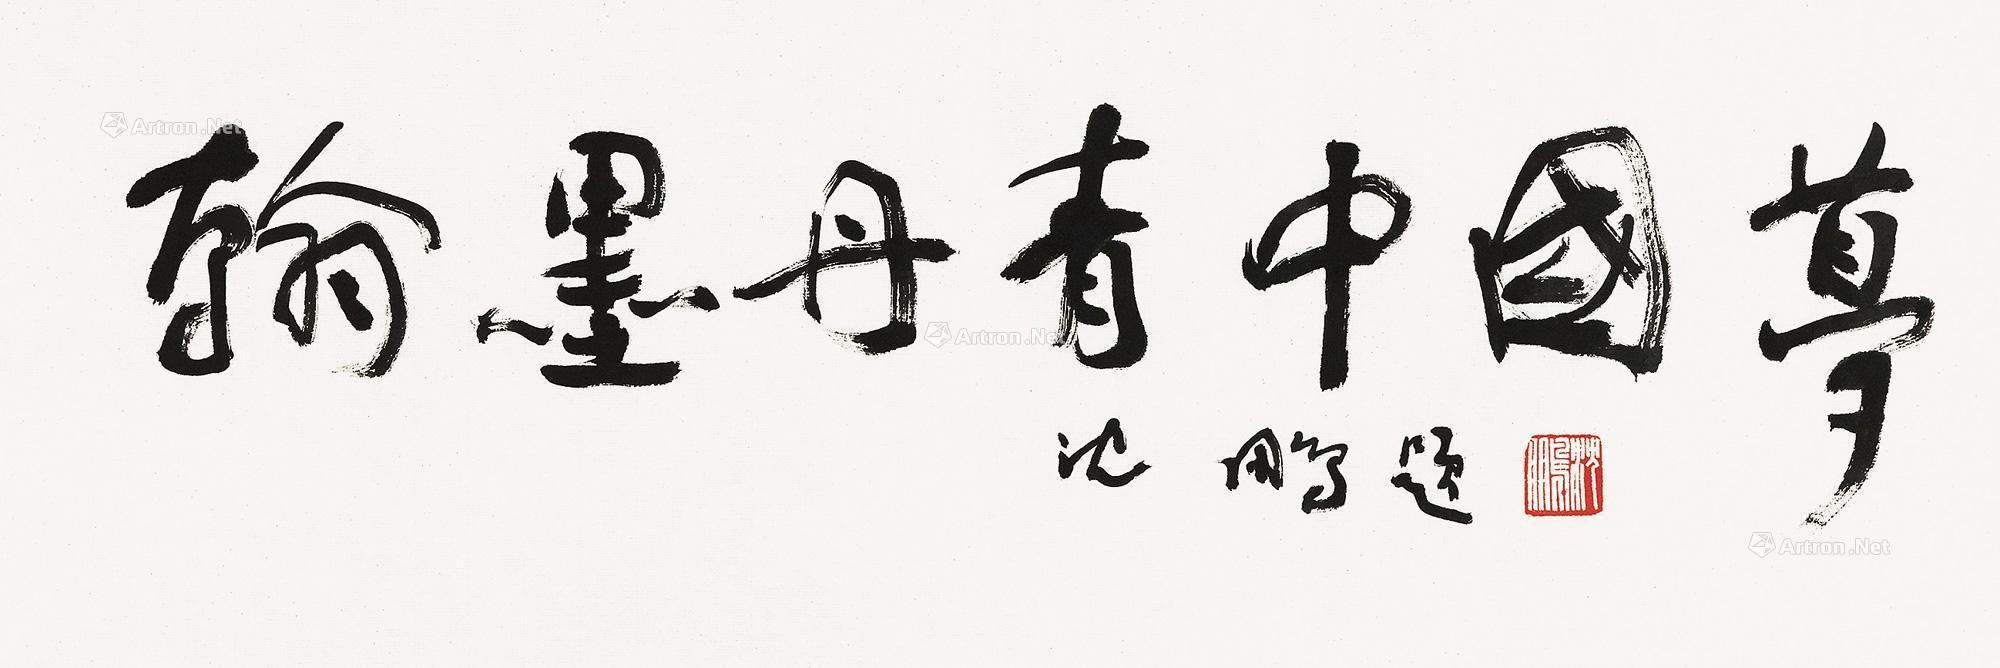 翰墨丹青中國夢
沈鵬題
沈鵬
Artron.Net
Artron.Net
Artron.Net